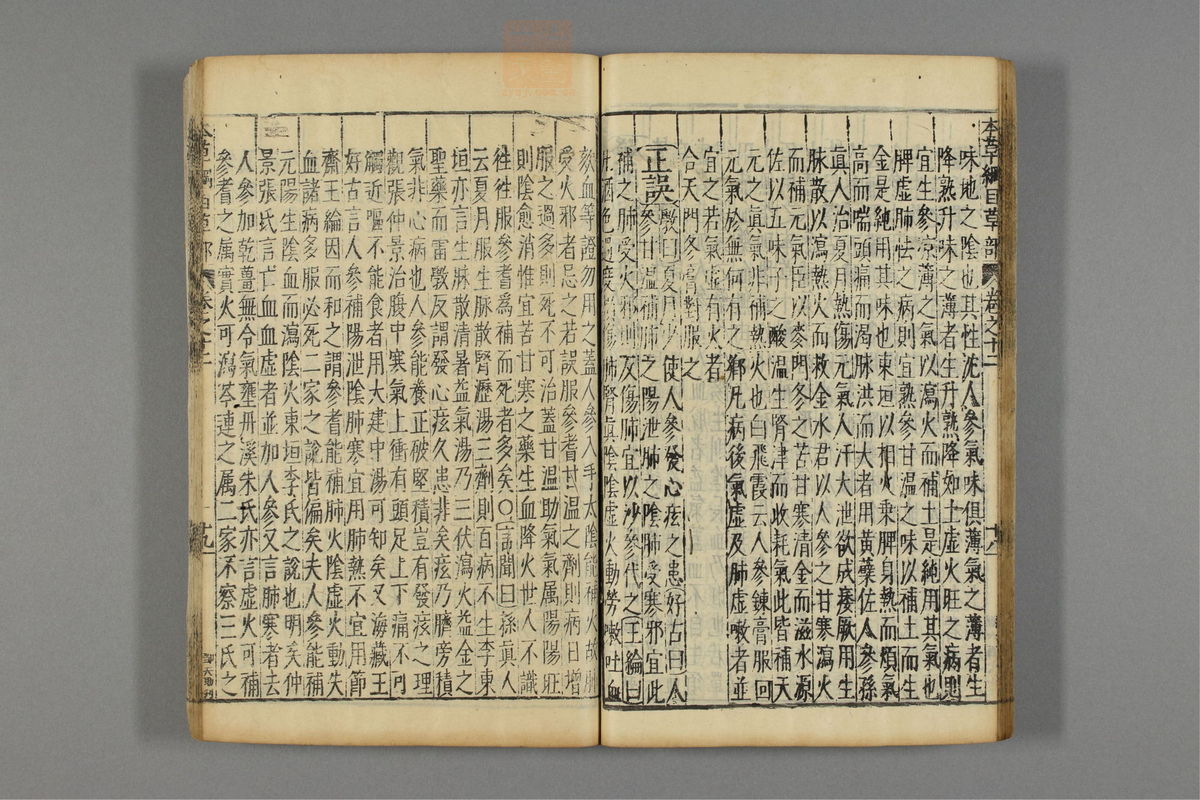 本草綱目草部 卷之十二 十八
味地之陰也其性沈人參氣味俱薄氣之薄者生
降熟升味之薄者生升熟降如土虛火旺之病則
宜生參凉薄之氣以瀉火而補土是純用其氣也
脾虛肺怯之病則宜熟參甘溫之味以補土而生
金是純用其味也東垣以相火乗脾身熱而煩氣
高而喘頭痛而渴脉洪而大者用黃蘗佐人參孫
眞人治夏月熱傷元氣人汗大泄欲成痿厥用生
脉散以瀉熱火而救金水君以人參之甘寒瀉火
而補元氣臣以麥門冬之苦甘寒清金而滋水源
佐以五味子之酸溫生腎津而收耗氣此皆補天
元之眞氣非補熱火也白飛霞云人參鍊膏服回
元氣於無何有之鄉凡病後氣虛及肺虛嗽者並
宜之若氣虛有火者
合天門冬膏對服之
正誤 斅曰夏月少使人參發心痃之患好古曰人
參甘溫補肺之陽泄肺之陰肺受寒邪宜此
補之肺受火邪則反傷肺宜以沙參代之王綸曰
酒色過度 傷肺腎眞陰陰虛火動勞嗽吐血
欬血等證勿用之蓋人參入手太陰能補火故肺
受火邪者忌之若誤服參耆甘溫之劑則病日增
服之過多則死不可治蓋甘溫助氣氣屬陽陽旺
則陰愈消惟宜苦甘寒之藥生血降火世人不識
徃徃服參耆爲補而死者多矣○言聞曰孫眞人
云夏月服生脉散腎瀝湯三劑則百病不生李東
垣亦言生脉散清暑益氣湯乃三伏瀉火益金之
聖藥而雷斅反謂發心痃之患非矣痃乃臍旁積
氣非心病也人參能養正破堅積豈有發痃之理
觀張仲景治腹中寒氣上衝有頭足上下痛不可
觸近嘔不能食者用大建中湯可知矣又海藏王
好古言人參補陽泄陰肺寒宜用肺熱不宜用節
齋王綸因而和之謂參耆能補肺火陰虛火動失
血諸病多服必死二家之說皆偏矣夫人參能補
元陽生陰血而瀉陰火東垣李氏之說也明矣仲
景張氏言亡血血虛者並加人參又言肺寒者去
人參加乾薑無令氣壅丹溪朱氏亦言虛火可補
參耆之屬實火可瀉芩連之屬二家不察三氏之
卷之十二 十九